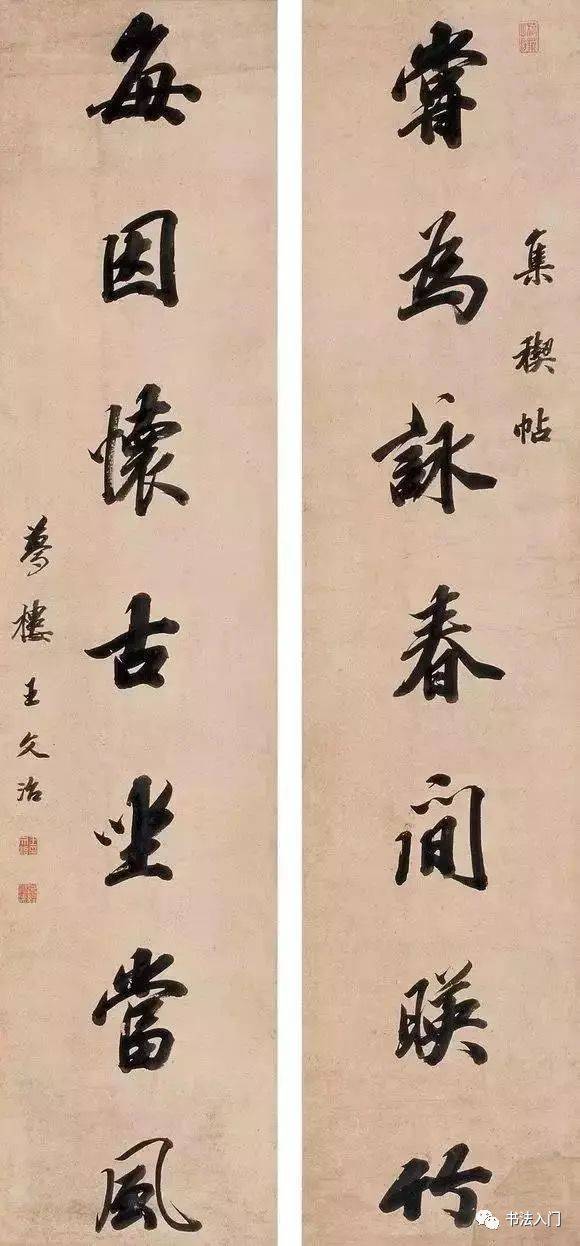 集稧帖
嘗為詠春間暎竹
每因懷古坐當風
夢樓王文治
书法入门